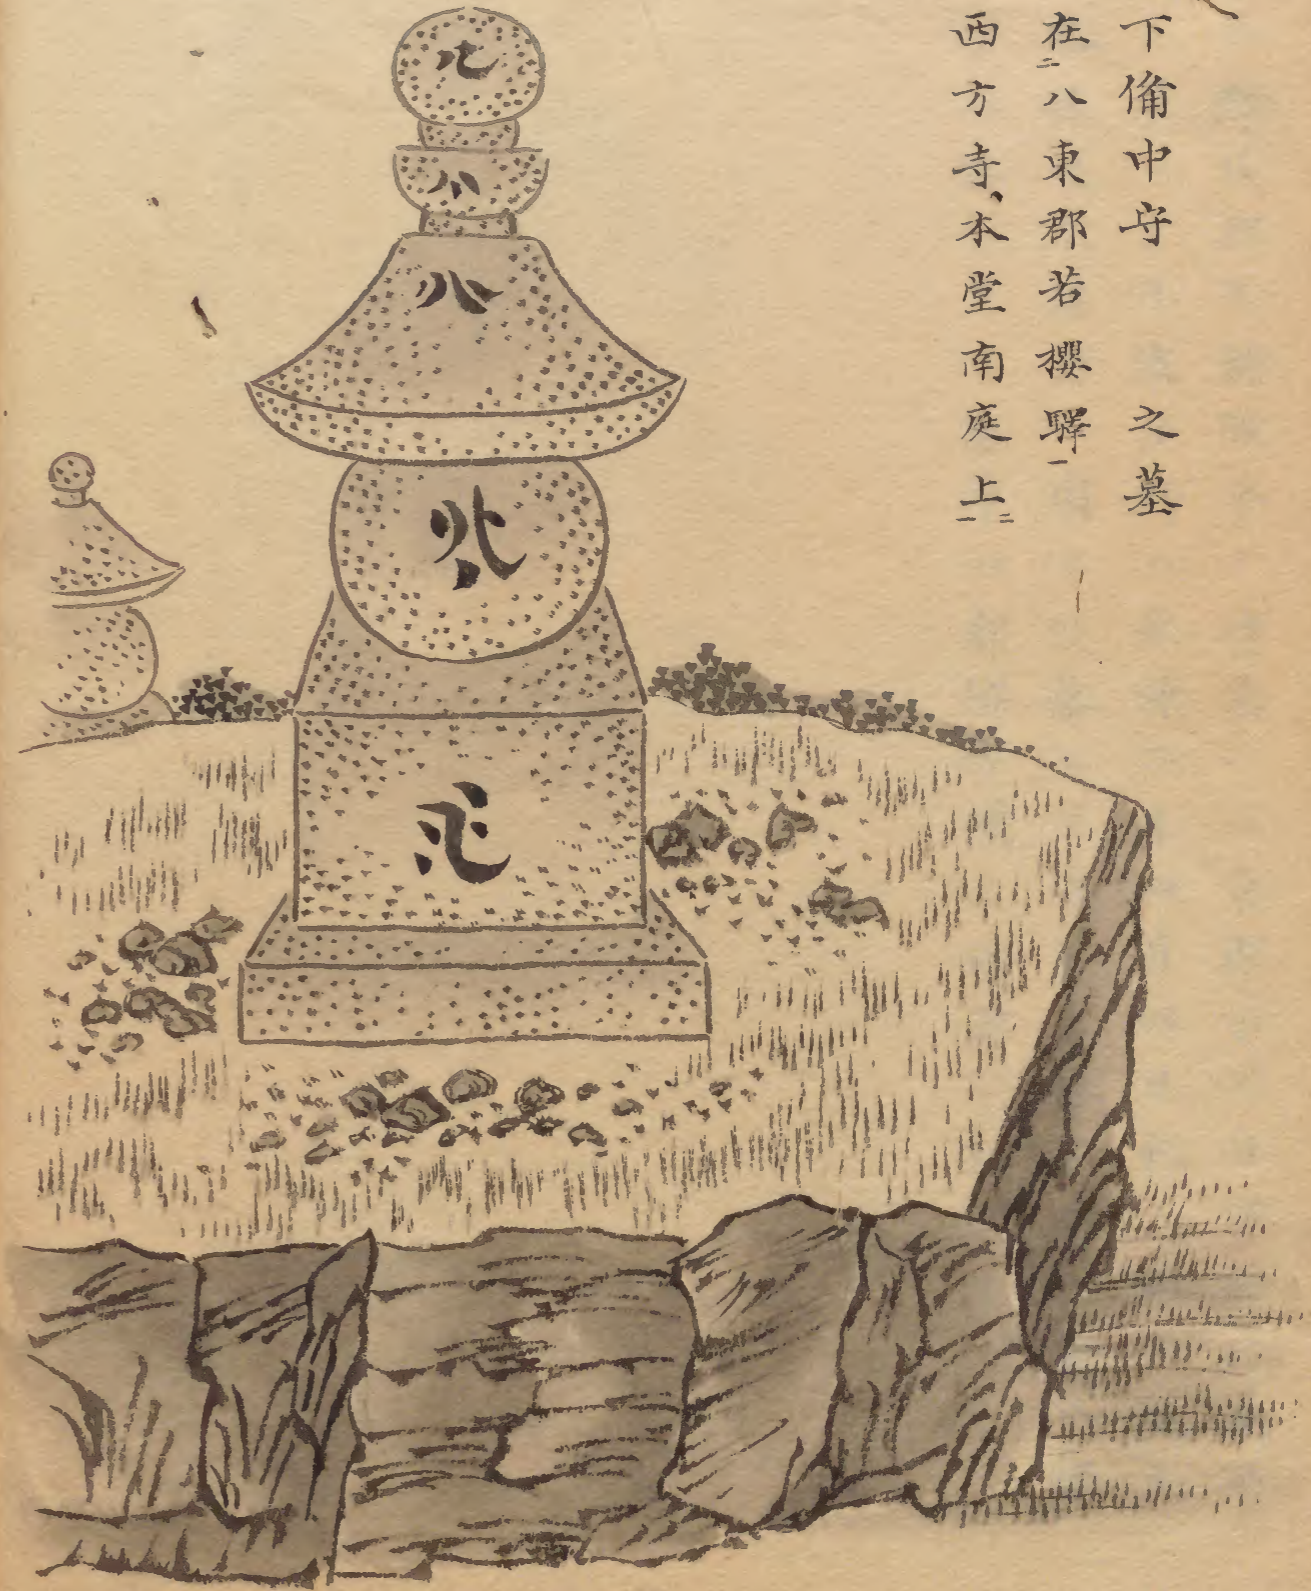 下備中守 之墓
在八東郡若櫻驛
西方寺、本堂南庭上